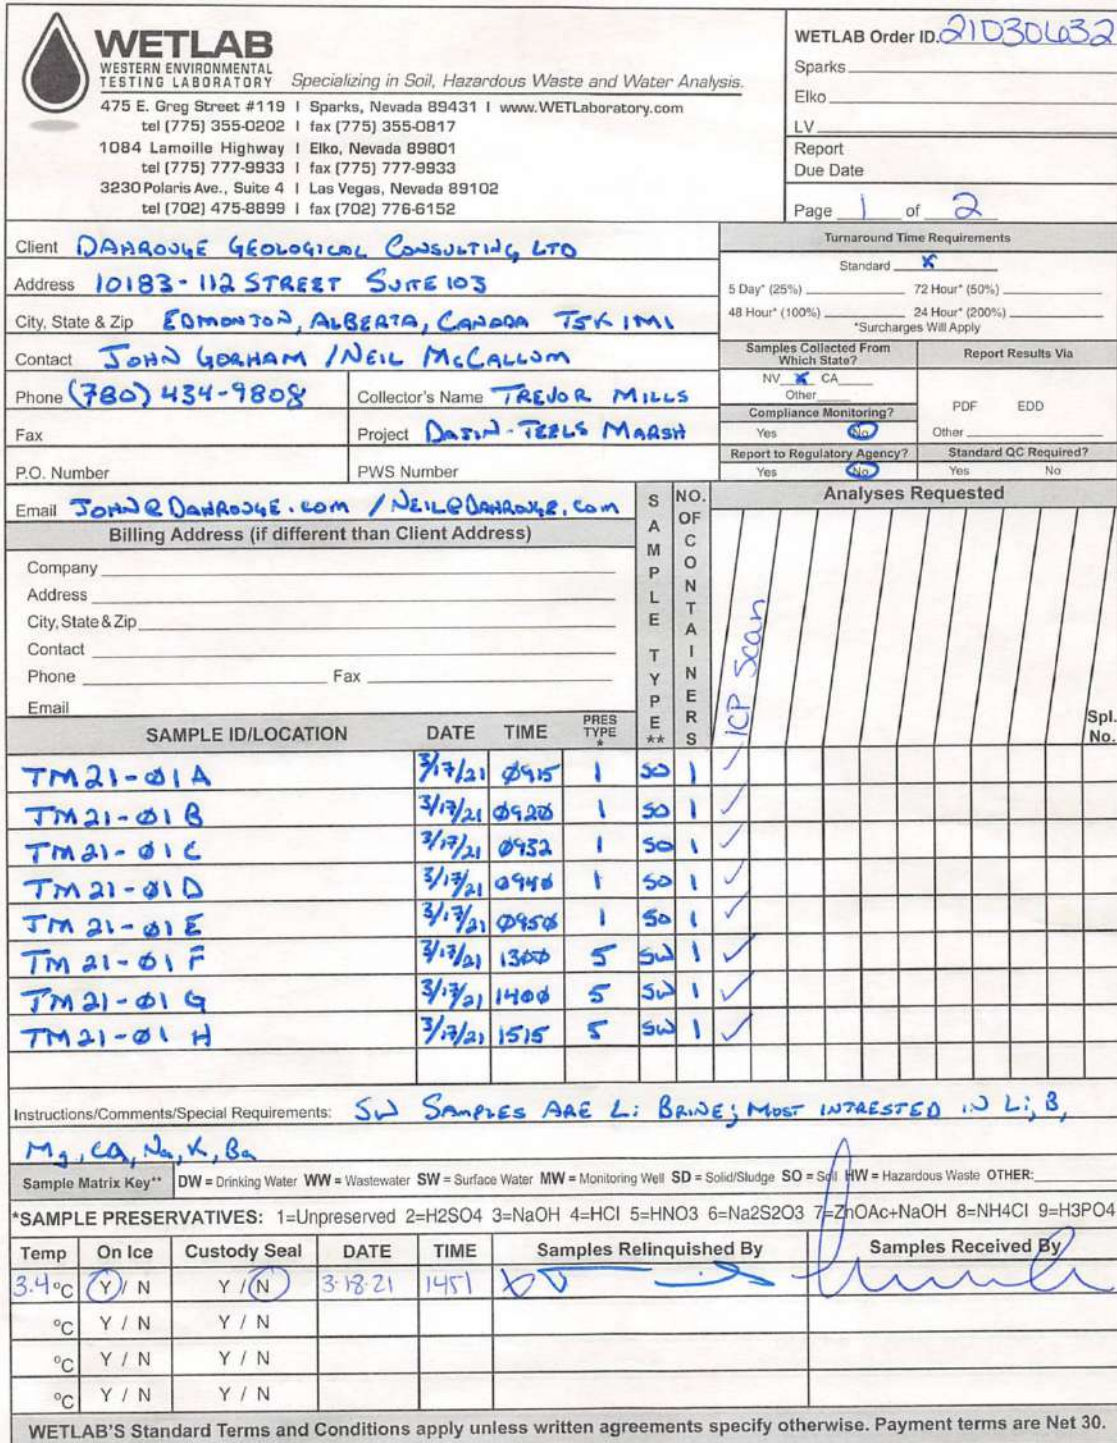 WETLAB
WESTERN ENVIRONMENTAL
TESTING LABORATORY Specializing in Soil, Hazardous Waste and Water Analysis.
475 E. Greg Street #119 | Sparks, Nevada 89431 | www.WETLaboratory.com
tel (775) 355-0202 | fax (775) 355-0817
1084 Lamoille Highway | Elko, Nevada 89801
tel (775) 777-9933 | fax (775) 777-9933
3230 Polaris Ave., Suite 4 | Las Vegas, Nevada 89102
tel (702) 475-8899 | fax (702) 776-6152
WETLAB Order ID. 21030632
Sparks
Elko
LV
Report
Due Date
Page 1 of 2
Client DAHROUGE GEOLOGICAL CONSULTING LTD
Address 10183-112 STREET SUITE 103
City, State & Zip EDMONTON, ALBERTA, CANADA T5K 1M1
Contact JOHN GORHAM / NEIL McCALLUM
Phone (780) 434-9808 Collector's Name TREVOR MILLS
Fax Project DATIN-TEELS MARSH
P.O. Number PWS Number
Email JOHN@DAHROUGE.com / NEIL@DAHROUGE.com
Turnaround Time Requirements
Standard X
5 Day* (25%) 72 Hour* (50%)
48 Hour* (100%) 24 Hour* (200%)
*Surcharges Will Apply
Samples Collected From Which State? Report Results Via
NV X CA
Other
PDF EDD
Compliance Monitoring?
Yes No Other
Report to Regulatory Agency? Standard QC Required?
Yes No Yes No
Billing Address (if different than Client Address)
Company
Address
City, State & Zip
Contact
Phone Fax
Email
SAMPLE TYPE** NO. OF CONTAINERS Analyses Requested
ICP Scan
Spl. No.
SAMPLE ID/LOCATION DATE TIME PRES TYPE *
TM21-Ø1A 3/17/21 Ø915 1 SO 1 ✓
TM21-Ø1B 3/17/21 Ø92Ø 1 SO 1 ✓
TM21-Ø1C 3/17/21 Ø932 1 SO 1 ✓
TM21-Ø1D 3/17/21 Ø94Ø 1 SO 1 ✓
TM21-Ø1E 3/17/21 Ø95Ø 1 SO 1 ✓
TM21-Ø1F 3/17/21 13ØØ 5 SW 1 ✓
TM21-Ø1G 3/17/21 14ØØ 5 SW 1 ✓
TM21-Ø1 H 3/17/21 1515 5 SW 1 ✓
Instructions/Comments/Special Requirements: SW SAMPLES ARE Li BRINE; MOST INTRESTED IN Li, B,
Mg, CA, Na, K, Ba
Sample Matrix Key** DW = Drinking Water WW = Wastewater SW = Surface Water MW = Monitoring Well SD = Solid/Sludge SO = Soil HW = Hazardous Waste OTHER:
*SAMPLE PRESERVATIVES: 1=Unpreserved 2=H2SO4 3=NaOH 4=HCl 5=HNO3 6=Na2S2O3 7=ZnOAc+NaOH 8=NH4Cl 9=H3PO4
Temp On Ice Custody Seal DATE TIME Samples Relinquished By Samples Received By
3.4 °C Y / N Y / N 3-18-21 1451
°C Y / N Y / N
°C Y / N Y / N
°C Y / N Y / N
WETLAB'S Standard Terms and Conditions apply unless written agreements specify otherwise. Payment terms are Net 30.